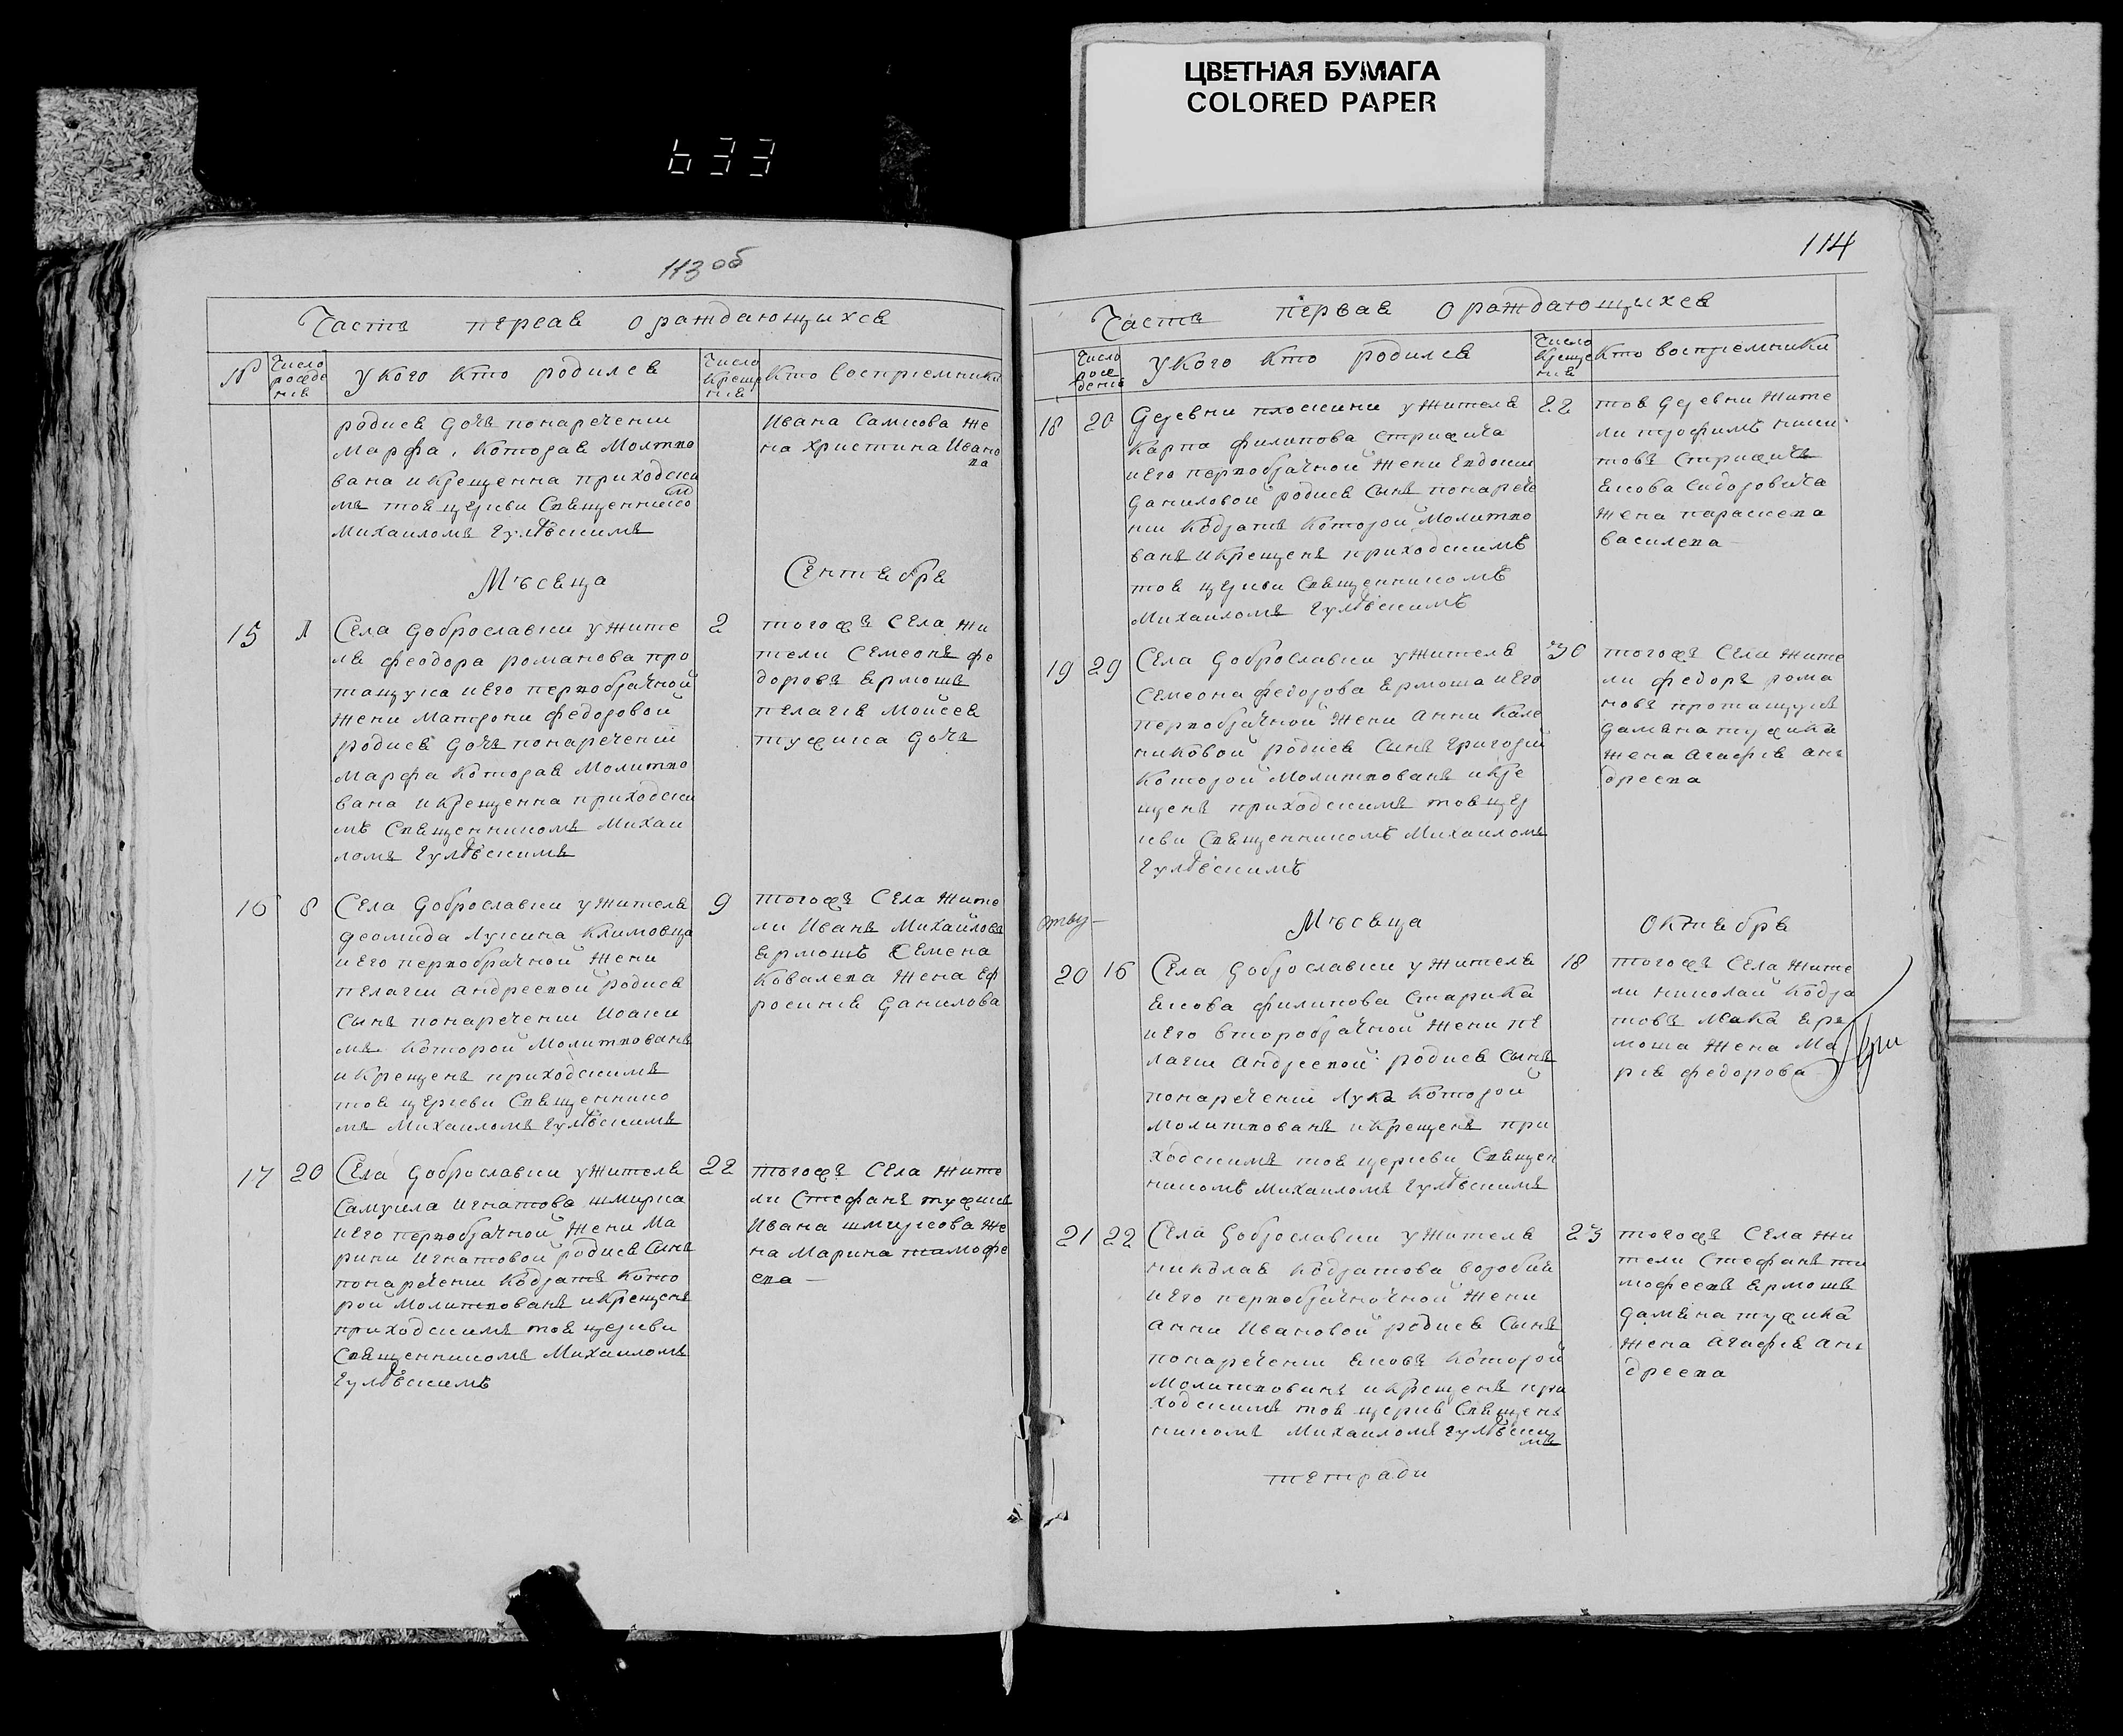 ЦВЕТНАЯ БУМАГА
COLORED PAPER
633
113 об
Часть первая о раждающихся
№
Число рожде нія
У кого кто родился
Число Креще нія
Кто воспріемники
родися дочь понаречении
Марфа, Которая Молитво
вана и Крещенна приходски
мъ тоя церкви Священнико
м
Михаиломъ
Ивана Самцова же
на Христина Ивано
ва
Мѣсяца Сентября
15 1
Села Доброславки у жите
ля Феодора романова про
тащука и Его первобрачной
жени Матрони Федоровой
родися дочь понаречений
Марфа Которая Молитво
вана и Крещенна приходски
мъ Священникомъ Михаи
ломъ
2
тогожъ Села жи
тели Семеонъ Фе
доровъ Ермошъ
пелагія Моисея
тужика дочь
16 8
Села Доброславки у жителя
Деомида Лукина Климовца
и Его первобрачной жени
пелагии Андреевой родися
Сынъ понаречении Иоаки
мъ Которой Молитвованъ
и Крещенъ приходскимъ
тоя церкви Священнико
мъ Михаиломъ
9
тогожъ Села жите
ли Иванъ Михайловъ
Ермошъ Семена
Ковалева жена Еф
росинія Данилова
17 20
Села Доброславки у жителя
Самуила Игнатова шмирка
и Его первобрачной жени Ма
рини Игнатовой родися Сынъ
понаречении Кодратъ Кото
рой Молитвованъ и Крещенъ
приходскимъ тоя церкви
Священникомъ Михаиломъ
22
тогожъ Села жите
ли Стефанъ тужикъ
Ивана шмиркова же
на Марина тамофе
ева
114
Часть первая о раждающихся
Число рож денія
У кого кто родился
Число Креще нія
Кто воспріемники
18 20
Деревни плоскини у жителя
Карпа Филипова Стрижича
и Его первобрачной жени Евдокии
Даниловой родися Сынъ понарече
нии Кодратъ Которой Молитво
ванъ и Крещенъ приходскимъ
тоя церкви Священникомъ
Михаиломъ
22
тоя деревни жите
ли трофимъ ники
товъ Стрижичъ
Якова Сидоровича
жена параскева
василева
19 29
Села Доброславки у жителя
Семеона Федорова Ермоша и Его
первобрачной жени Анни Кале
никовой родися Сынъ Григорий
Которой Молитвованъ и Кре
щенъ приходскимъ тоя цер
кви Священникомъ Михаиломъ
30
тогожъ Села жите
ли Федоръ рома
новъ протащукъ
Дамяна тужика
жена Агафія ань
дреева
Мѣсяца Октября
20 16
Села Доброславки у жителя
Якова Филипова Старика
и Его второбрачной жени пе
лагии Андреевой родися Сынъ
понаречений Лука Которой
Молитвованъ и Крещенъ при
ходскимъ тоя церкви Священ
никомъ Михаиломъ
18
тогожъ Села жите
ли николай Кодра
товъ Ермоша жена Ма
рія Федорова
21 22
Села Доброславки у жителя
николая Кодратова
и Его первобрачночной жени
Анни Ивановой родися Сынъ
понаречении Яковъ Которой
Молитвованъ и Крещенъ при
ходскимъ тоя церкв Священ
никомъ Михаиломъ
23
тогожъ Села жи
тели Стефанъ ти
мофеевъ Ермошъ
Дамяна тужика
жена Агафія ань
дреева
тетради